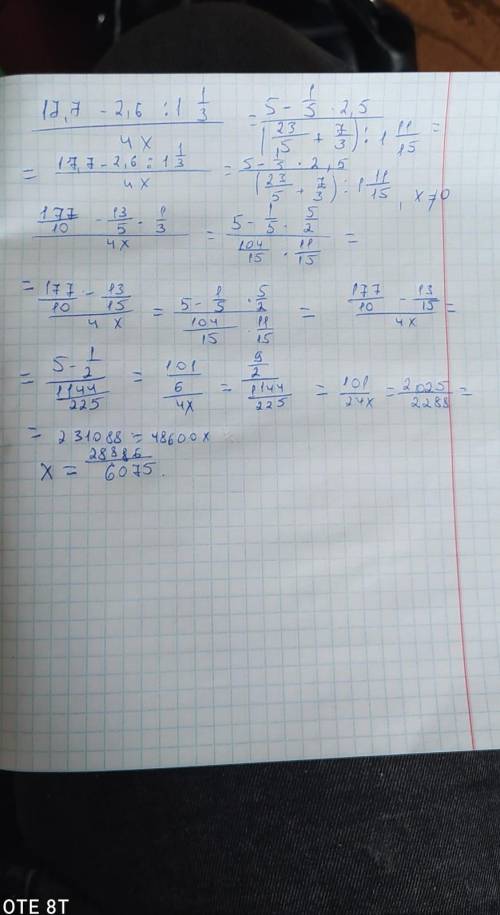 (17,7 - 2,6 : 1 1/3) / 4x = (5 - 1/5 · 2,5) / ((23/5 + 7/3) : 1 11/15) =
= (17,7 - 2,6 : 1 1/3) / 4x = (5 - 1/3 · 2,5) / ((23/5 + 7/3) : 1 11/15), x ≠ 0
(177/10 - 13/5 · 1/3) / 4x = (5 - 1/5 · 5/2) / (104/15 · 11/15) =
= (177/10 - 13/15) / 4x = (5 - 1/5 · 5/2) / (104/15 · 11/15) = (177/10 - 13/15) / 4x =
= (5 - 1/2) / (1144/225) = (101/6) / 4x = (9/2) / (1144/225) = 101/24x = 2025/2288 =
= 231088 = 48600x
x = 28886/6075.
OTE 8T